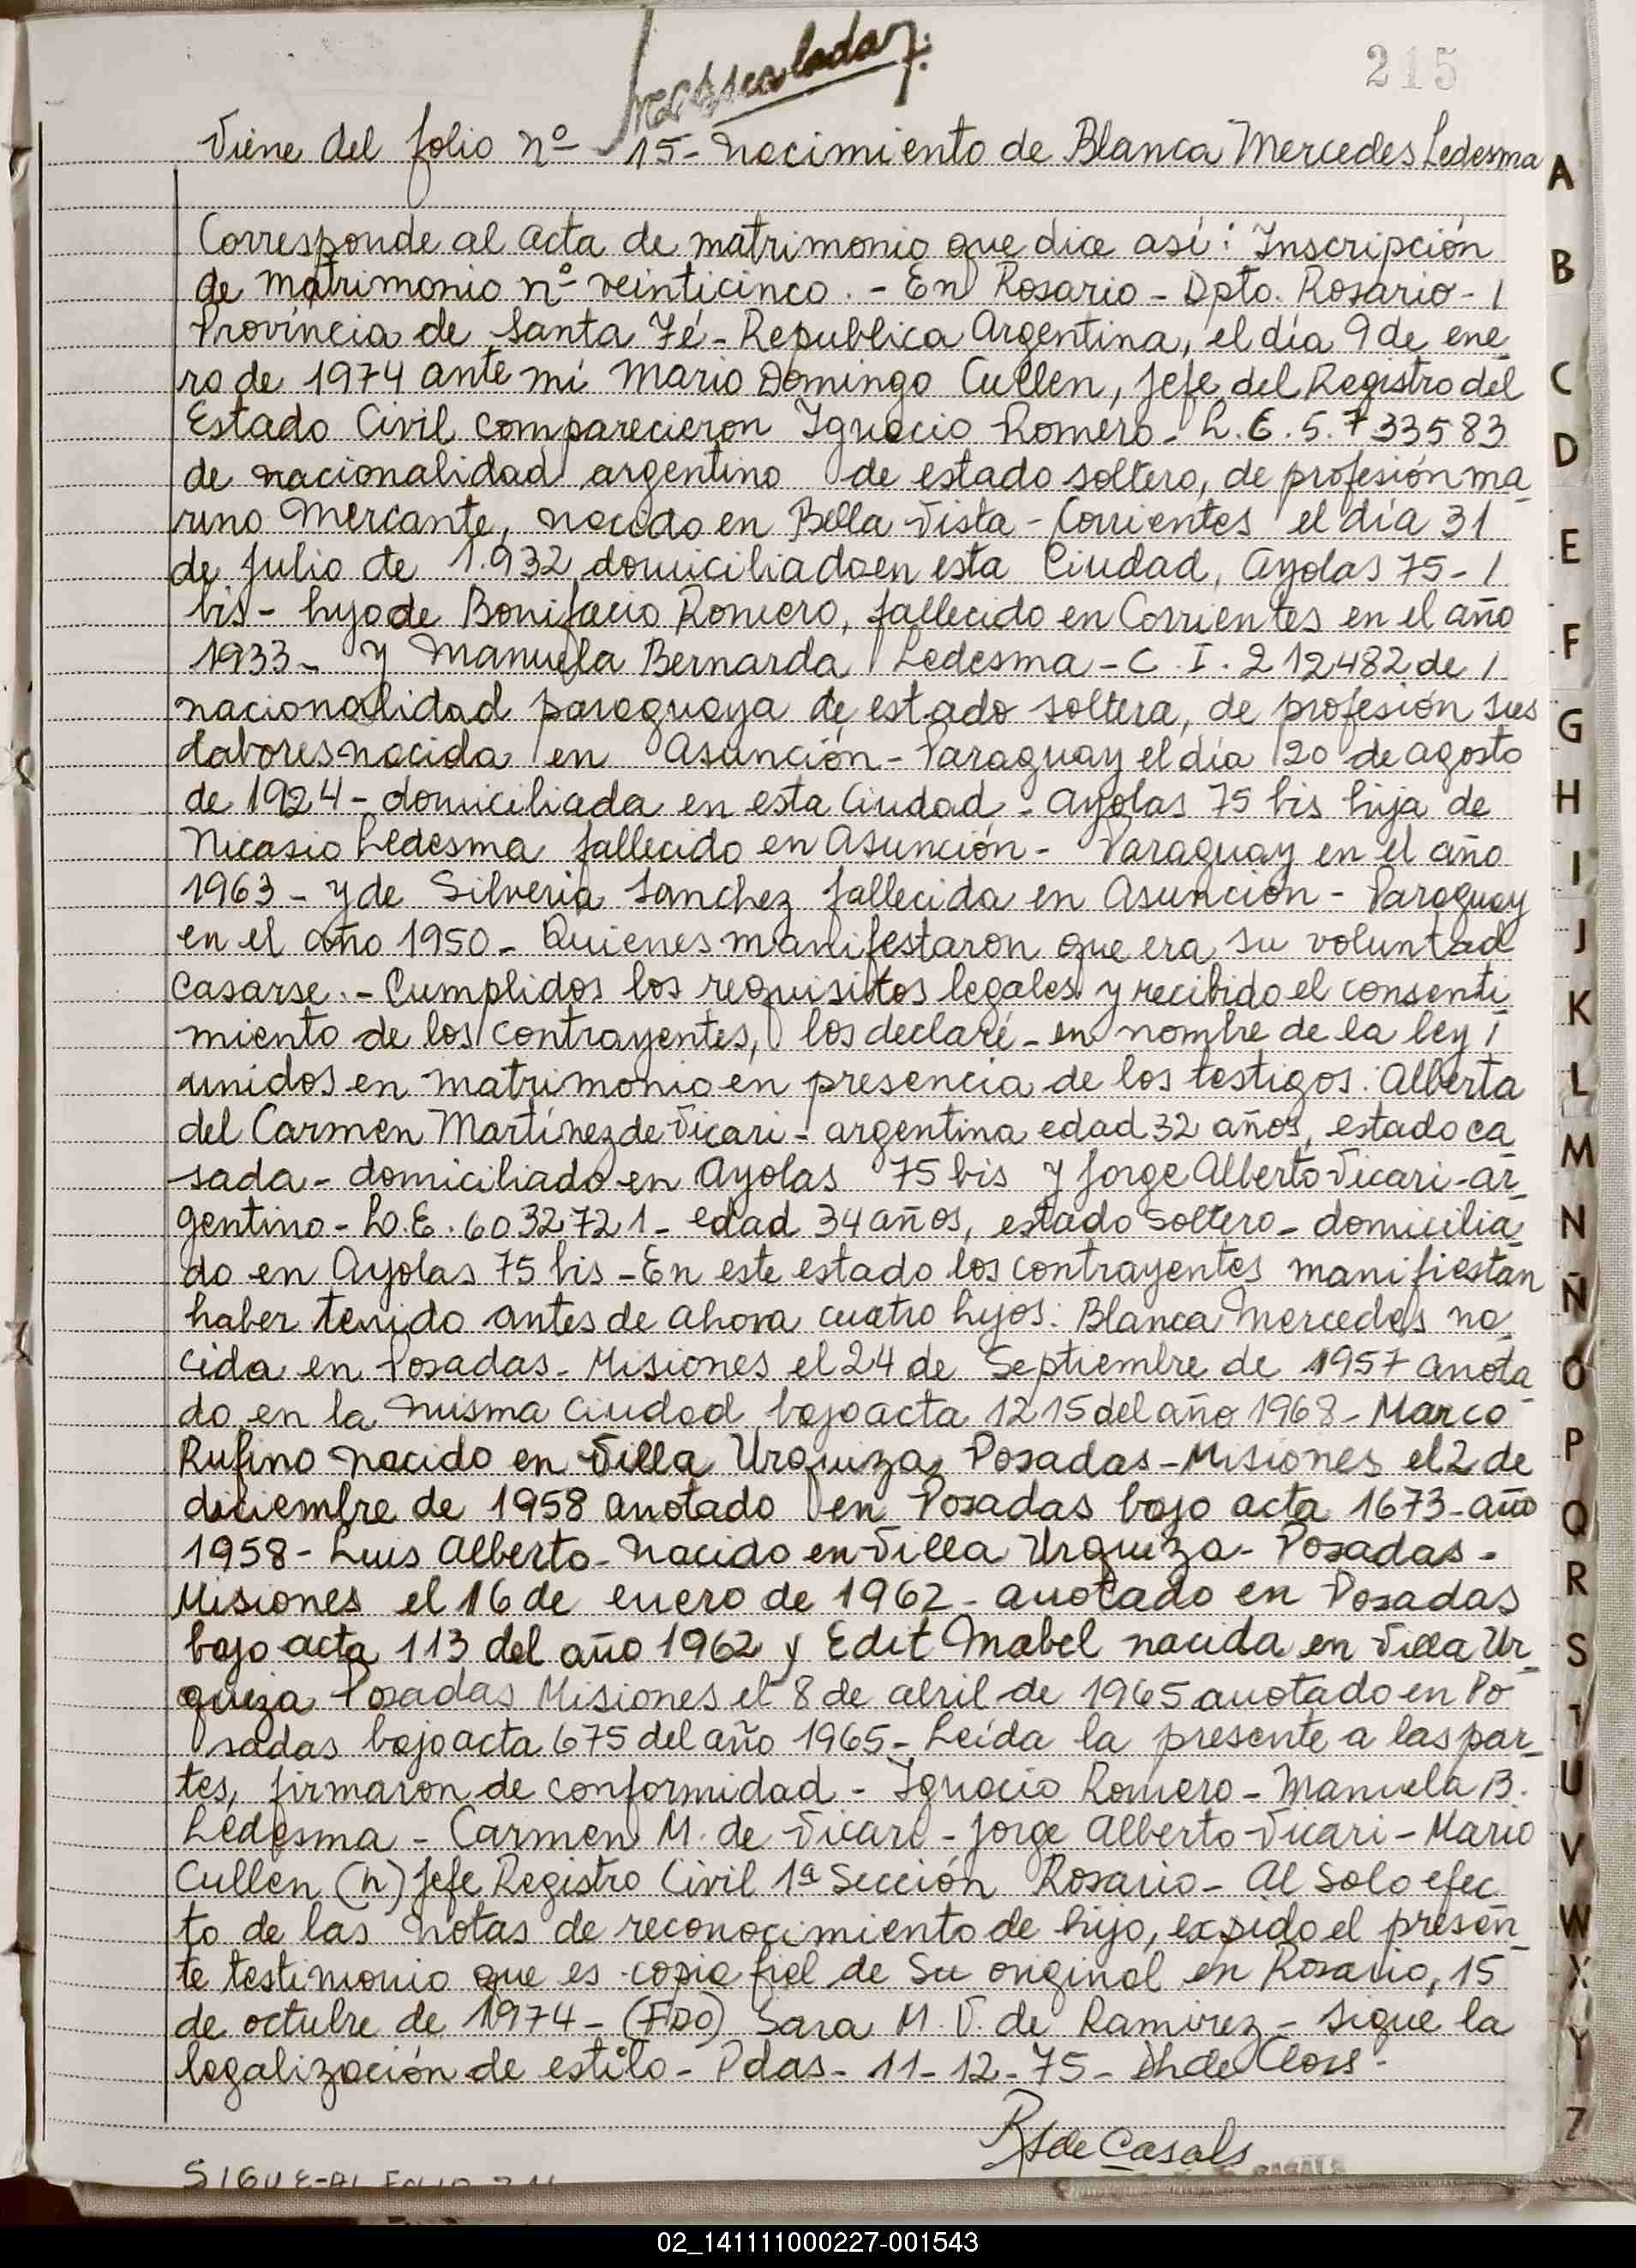 215
Viene del folio nº 15- nacimiento de Blanca Mercedes Ledesma
Corresponde al acta de matrimonio que dice así: Inscripción
de matrimonio nº veinticinco.- En Rosario - Dpto. Rosario - /
Provincia de Santa Fé - Republica Argentina, el día 9 de ene
ro de 1974 ante mí Mario Domingo Cullen, Jefe del Registro del
Estado Civil comparecieron Ignacio Romero - L.E. 5.733583
de nacionalidad argentino de estado soltero, de profesión ma
rino Mercante, nacido en Bella Vista - Corrientes el día 31
de Julio de 1.932 domiciliado en esta Ciudad, Ayolas 75 - /
bis - hijo de Bonifacio Romero, fallecido en Corrientes en el año
1933 - y Manuela Bernarda Ledesma - C.I. 212482 de /
nacionalidad paraguaya de estado soltera, de profesión sus
labores nacida en Asunción - Paraguay el día 20 de agosto
de 1924 - domiciliada en esta Ciudad - Ayolas 75 bis hija de
Nicasio Ledesma fallecido en Asunción - Paraguay en el año
1963 - y de Silveria Sanchez fallecida en Asunción - Paraguay
en el año 1950 - Quienes manifestaron que era su voluntad
casarse.- Cumplidos los requisitos legales y recibido el consenti
miento de los contrayentes, los declaré - en nombre de la ley /
unidos en matrimonio en presencia de los testigos: Alberta
del Carmen Martínez de Vicari - argentina edad 32 años, estado ca
sada - domiciliado en Ayolas 75 bis y Jorge Alberto Vicari - ar
gentino - L.E. 6032721 - edad 34 años, estado soltero - domicilia
do en Ayolas 75 bis - En este estado los contrayentes manifiestan
haber tenido antes de ahora cuatro hijos: Blanca Mercedes na
cida en Posadas - Misiones el 24 de Septiembre de 1957 anota
do en la misma Ciudad bajo acta 1215 del año 1968 - Marco
Rufino nacido en Villa Urquiza Posadas - Misiones el 2 de
diciembre de 1958 anotado en Posadas bajo acta 1673 - año
1958 - Luis Alberto - nacido en Villa Urquiza - Posadas -
Misiones el 16 de enero de 1962 - anotado en Posadas
bajo acta 113 del año 1962 y Edit Mabel nacida en Villa Ur
quiza Posadas Misiones el 8 de abril de 1965 anotado en Po
sadas bajo acta 675 del año 1965 - Leída la presente a las par
tes, firmaron de conformidad - Ignacio Romero - Manuela B.
Ledesma - Carmen M. de Vicari - Jorge Alberto Vicari - Mario
Cullen (h) Jefe Registro Civil 1ª Sección Rosario - Al Solo efec
to de las notas de reconocimiento de hijo, expido el presen
te testimonio que es copia fiel de su original en Rosario, 15
de octubre de 1974 - (FDO) Sara M. V. de Ramirez - Sigue la
legalización de estilo - Pdas - 11 - 12 - 75 -
de Casals
SIGUE AL FOLIO
A
B
C
D
E
F
G
H
I
J
K
L
M
N
Ñ
O
P
Q
R
S
T
U
V
W
X
Y
Z
02_141111000227-001543